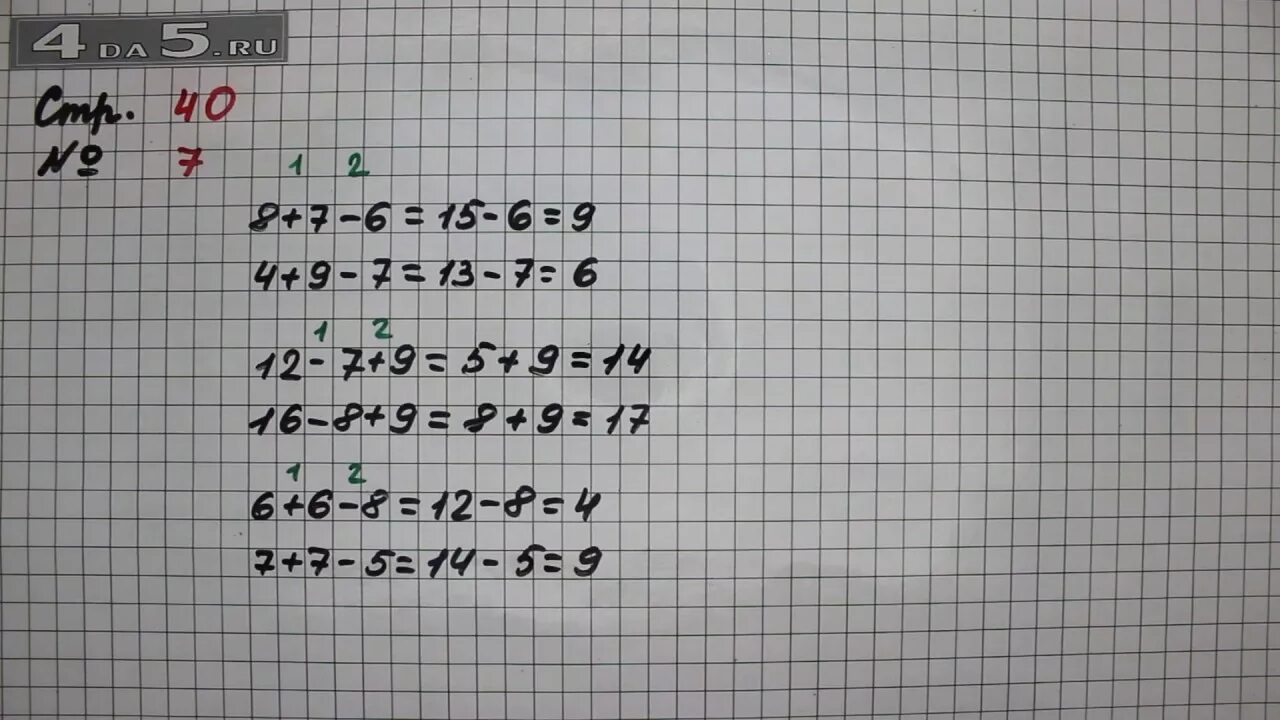 4DA5.RU
Стр. 40
№ 7
1 2
8+7-6=15-6=9
4+9-7=13-7=6
1 2
12-7+9=5+9=14
16-8+9=8+9=17
1 2
6+6-8=12-8=4
7+7-5=14-5=9